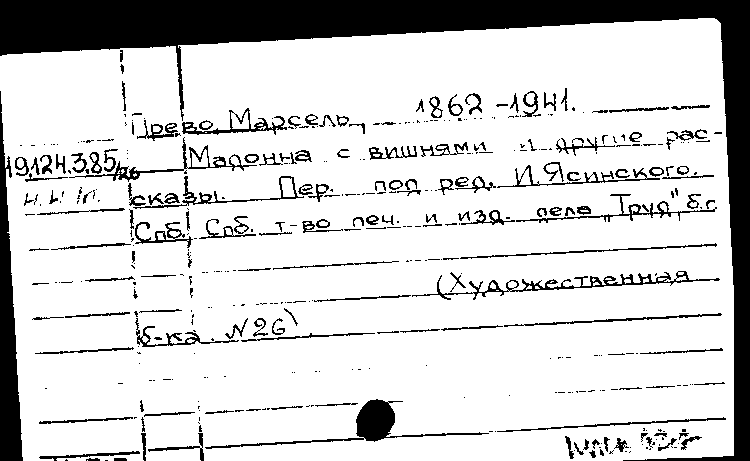 Прево, Марсель, 1862-1941.
19.124.3.85/26 Мадонна с вишнями и другие рас-
сказы. Пер. под ред. И. Ясинского.
Спб. Спб. т-во печ. и изд. дела „Труд", б.г.
(Художественная
б-ка. N26)